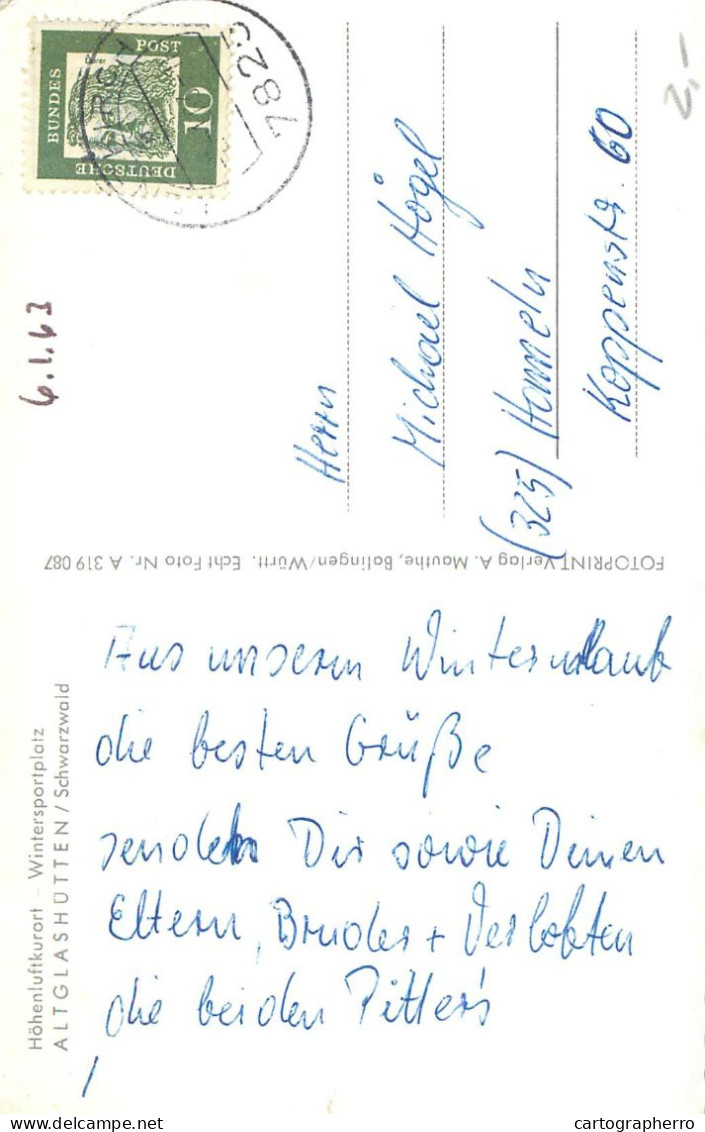 DEUTSCHE
BUNDES
POST
10
Dürer
7823
6.1.63
2,-
Herrn
Michael Högel
(325) Hameln
Koppenstr. 60
FOTOPRINT Verlag A. Mauthe, Balingen/Württ. Echt Foto Nr. A 319 087
Höhenluftkurort - Wintersportplatz
ALTGLASHÜTTEN / Schwarzwald
Aus unserm Winterurlaub
die besten Grüße
senden Dir sowie Deinen
Eltern, Bruder + Verlobten
die beiden Pitter's
cartographerro